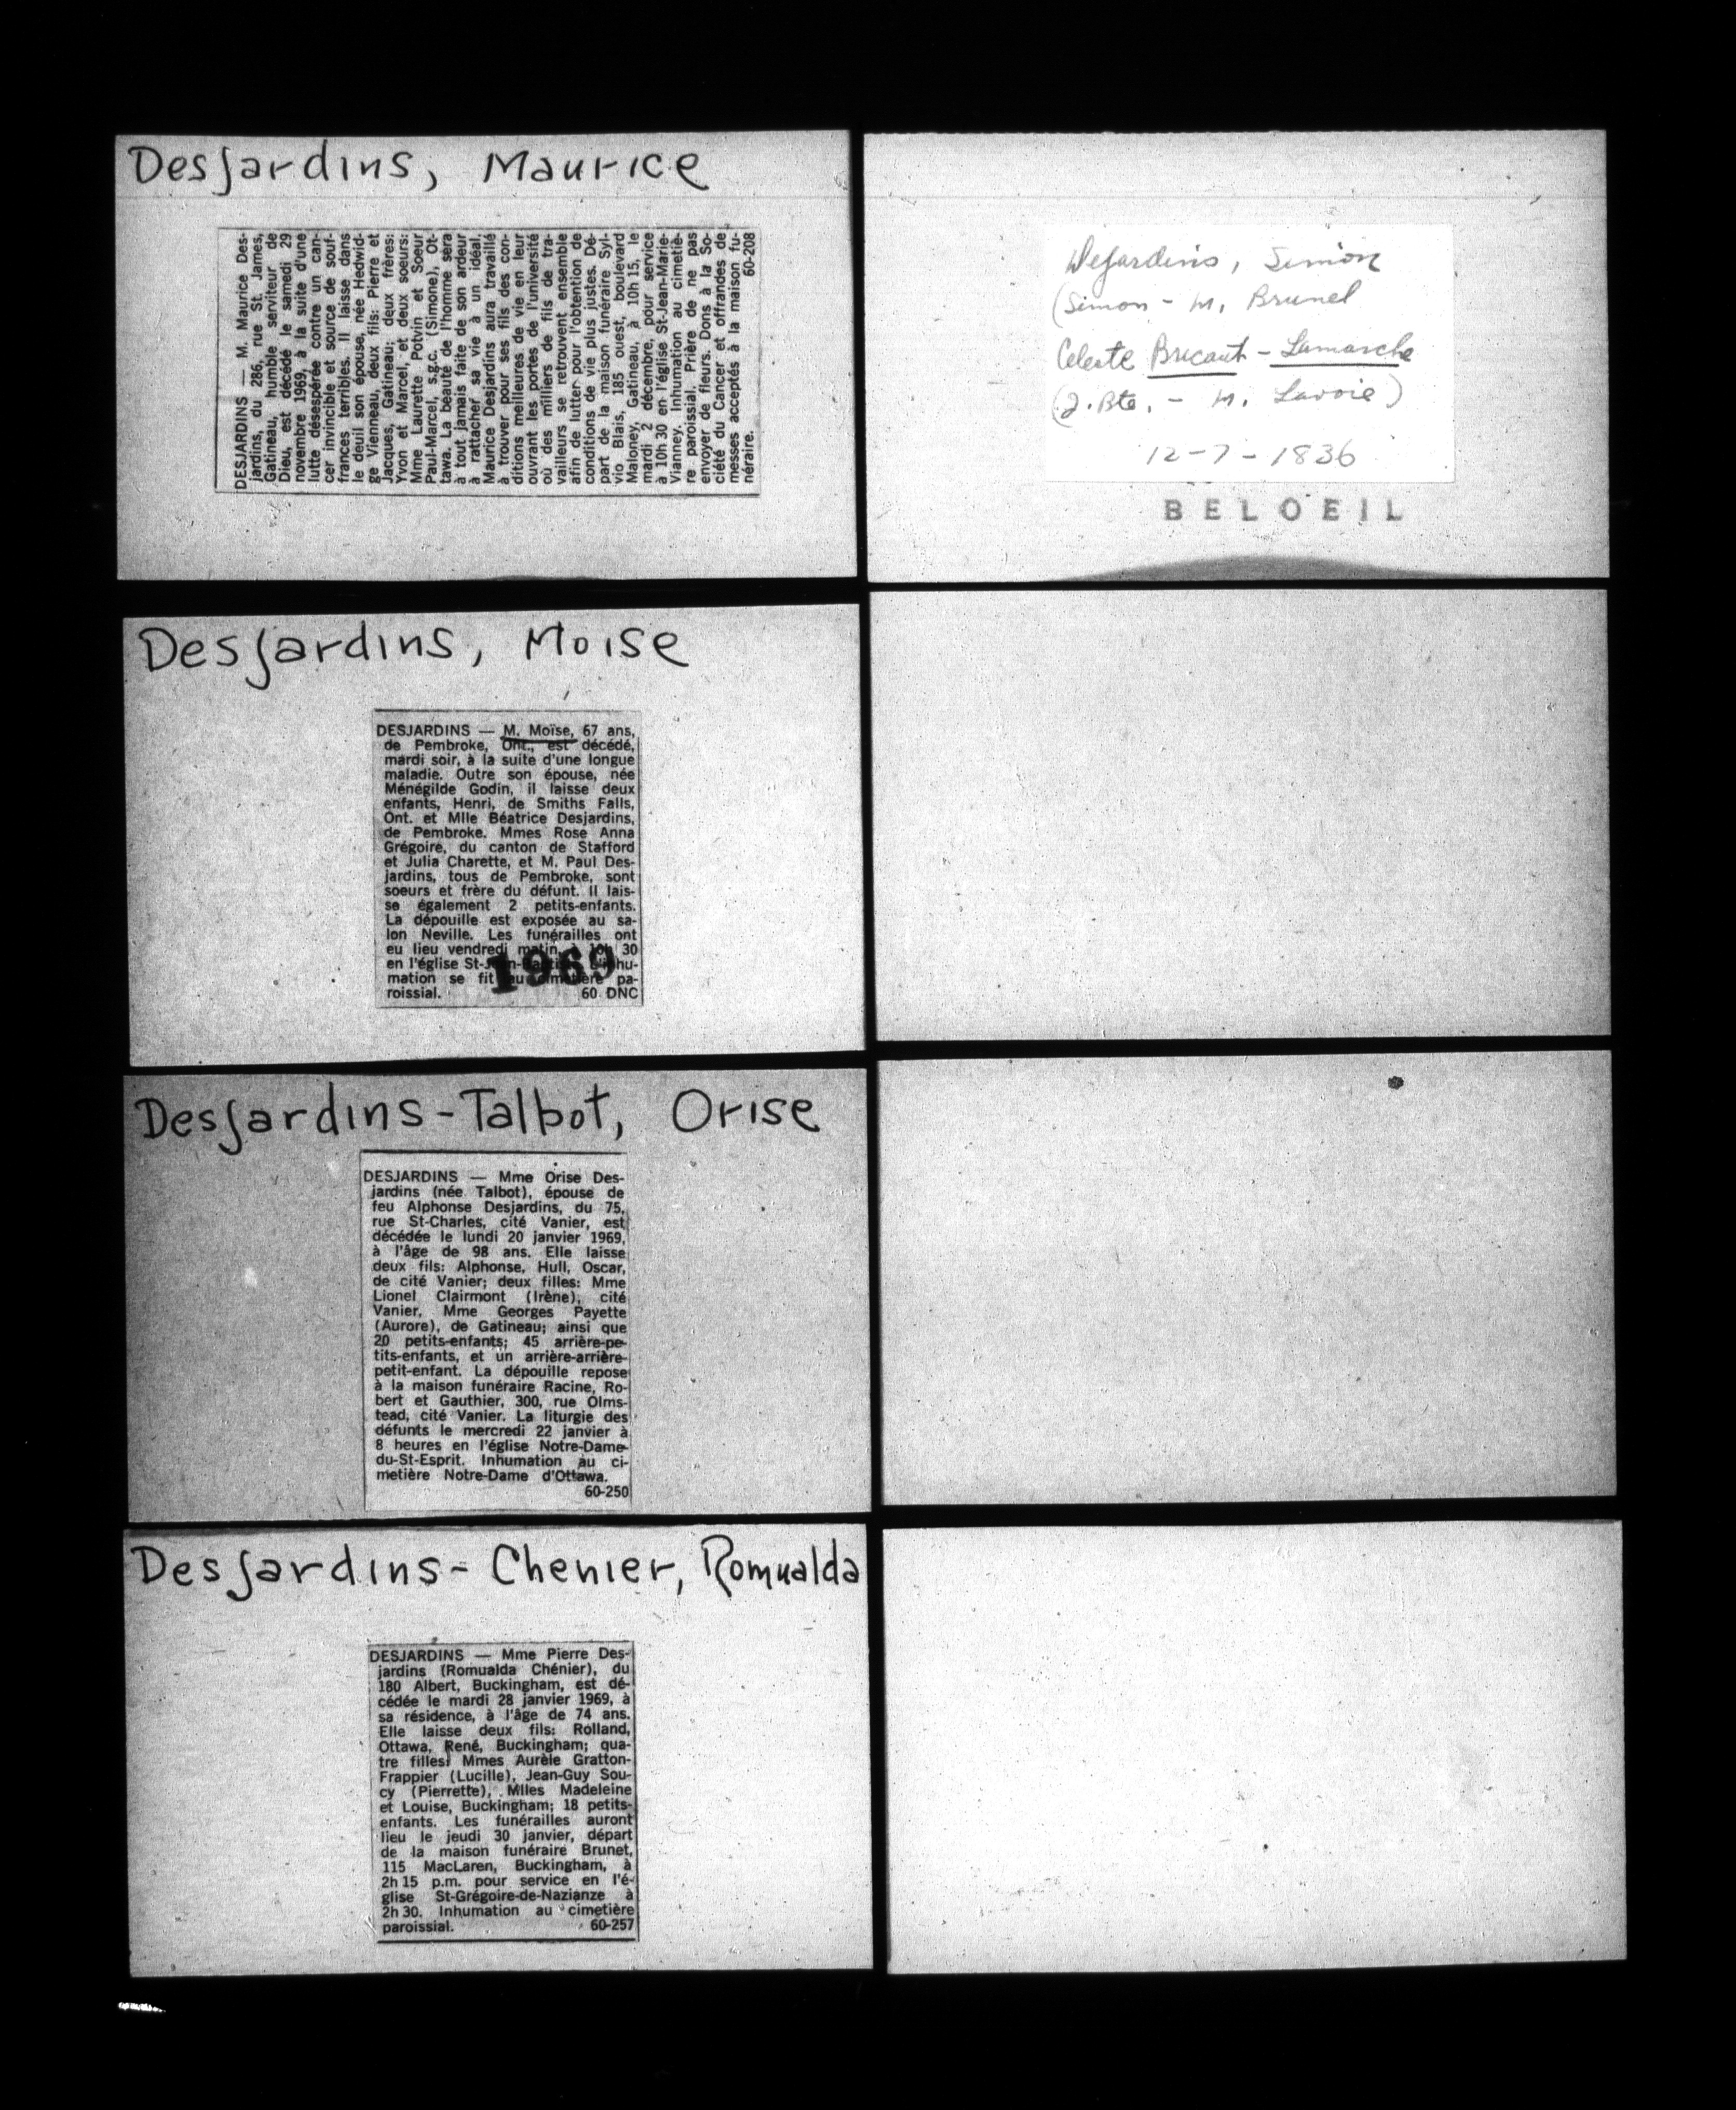 Desjardins, Maurice
DESJARDINS — M. Maurice Des-
jardins, du 286, rue St. James,
Gatineau, humble serviteur de
Dieu, est décédé le samedi 29
novembre 1969, à la suite d'une
lutte désespérée contre un can-
cer invincible et source de souf-
frances terribles. Il laisse dans
le deuil son épouse, née Hedwid-
ge Vienneau, deux fils: Pierre et
Jacques, Gatineau; deux frères:
Yvon et Marcel, et deux soeurs:
Mme Laurette Potvin et Soeur
Paul-Marcel, s.g.c. (Simone), Ot-
tawa. La beauté de l'homme sera
à tout jamais faite de son ardeur
à rattacher sa vie à un idéal.
Maurice Desjardins aura travaillé
à trouver pour ses fils des con-
ditions meilleures de vie en leur
ouvrant les portes de l'université
où des milliers de fils de tra-
vailleurs se retrouvent ensemble
afin de lutter pour l'obtention de
conditions de vie plus justes. Dé-
part de la maison funéraire Syl-
vio Blais, 185 ouest, boulevard
Maloney, Gatineau, à 10h 15, le
mardi 2 décembre, pour service
à 10h 30 en l'église St-Jean-Marie-
Vianney. Inhumation au cimetiè-
re paroissial. Prière de ne pas
envoyer de fleurs. Dons à la So-
ciété du Cancer et offrandes de
messes acceptés à la maison fu-
néraire. 60-208
Desjardins, Simon
(Simon - M. Brunel
Celeste Bricault - Lamarche
(J. Bte. - M. Lavoie)
12-7-1836
BELOEIL
Desjardins, Moise
DESJARDINS — M. Moïse, 67 ans,
de Pembroke, Ont., est décédé,
mardi soir, à la suite d'une longue
maladie. Outre son épouse, née
Ménégilde Godin, il laisse deux
enfants, Henri, de Smiths Falls,
Ont. et Mlle Béatrice Desjardins,
de Pembroke. Mmes Rose Anna
Grégoire, du canton de Stafford
et Julia Charette, et M. Paul Des-
jardins, tous de Pembroke, sont
soeurs et frère du défunt. Il lais-
se également 2 petits-enfants.
La dépouille est exposée au sa-
lon Neville. Les funérailles ont
eu lieu vendredi matin, à 10h 30
en l'église St-Jean-Baptiste. L'inhu-
mation se fit au cimetière pa-
roissial. 60 DNC
1969
Desjardins-Talbot, Orise
DESJARDINS — Mme Orise Des-
jardins (née Talbot), épouse de
feu Alphonse Desjardins, du 75,
rue St-Charles, cité Vanier, est
décédée le lundi 20 janvier 1969,
à l'âge de 98 ans. Elle laisse
deux fils: Alphonse, Hull, Oscar,
de cité Vanier; deux filles: Mme
Lionel Clairmont (Irène), cité
Vanier, Mme Georges Payette
(Aurore), de Gatineau; ainsi que
20 petits-enfants; 45 arrière-pe-
tits-enfants, et un arrière-arrière-
petit-enfant. La dépouille repose
à la maison funéraire Racine, Ro-
bert et Gauthier, 300, rue Olms-
tead, cité Vanier. La liturgie des
défunts le mercredi 22 janvier à
8 heures en l'église Notre-Dame-
du-St-Esprit. Inhumation au ci-
metière Notre-Dame d'Ottawa.
60-250
Desjardins-Chenier, Romualda
DESJARDINS — Mme Pierre Des-
jardins (Romualda Chénier), du
180 Albert, Buckingham, est dé-
cédée le mardi 28 janvier 1969, à
sa résidence, à l'âge de 74 ans.
Elle laisse deux fils: Rolland,
Ottawa, René, Buckingham; qua-
tre filles: Mmes Aurèle Gratton-
Frappier (Lucille), Jean-Guy Sou-
cy (Pierrette), Mlles Madeleine
et Louise, Buckingham; 18 petits-
enfants. Les funérailles auront
lieu le jeudi 30 janvier, départ
de la maison funéraire Brunet,
115 MacLaren, Buckingham, à
2h 15 p.m. pour service en l'é-
glise St-Grégoire-de-Nazianze à
2h 30. Inhumation au cimetière
paroissial. 60-257